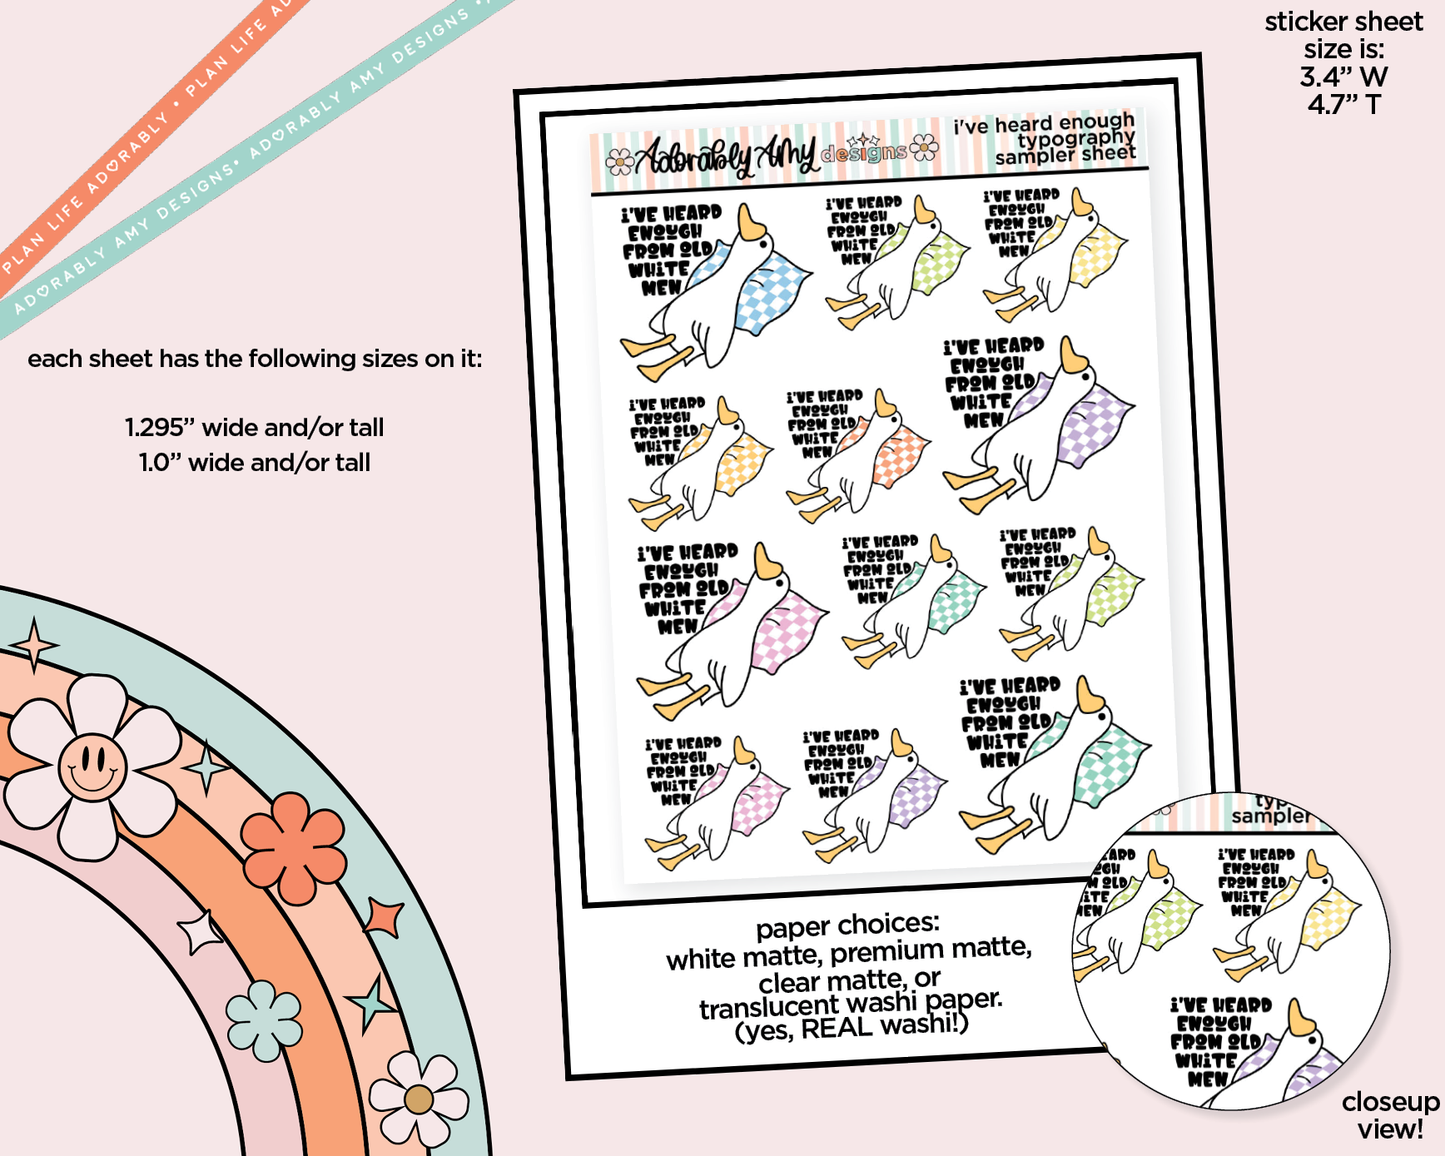 PLAN LIFE ADORABLY • PLAN LIFE AD
ADORABLY AMY DESIGNS• ADORABLY AMY DESIGNS •
sticker sheet
size is:
3.4” W
4.7” T
each sheet has the following sizes on it:
1.295” wide and/or tall
1.0” wide and/or tall
Adorably Amy designs
i've heard enough
typography
sampler sheet
i'VE HEARD
ENOUGH
FROM OLD
WHiTE
MEN
i'VE HEARD
ENOUGH
FROM OLD
WHiTE
MEN
i'VE HEARD
ENOUGH
FROM OLD
WHiTE
MEN
i'VE HEARD
ENOUGH
FROM OLD
WHiTE
MEN
i'VE HEARD
ENOUGH
FROM OLD
WHiTE
MEN
i'VE HEARD
ENOUGH
FROM OLD
WHiTE
MEN
i'VE HEARD
ENOUGH
FROM OLD
WHiTE
MEN
i'VE HEARD
ENOUGH
FROM OLD
WHiTE
MEN
i'VE HEARD
ENOUGH
FROM OLD
WHiTE
MEN
i'VE HEARD
ENOUGH
FROM OLD
WHiTE
MEN
i'VE HEARD
ENOUGH
FROM OLD
WHiTE
MEN
i'VE HEARD
ENOUGH
FROM OLD
WHiTE
MEN
paper choices:
white matte, premium matte,
clear matte, or
translucent washi paper.
(yes, REAL washi!)
sampler
i'VE HEARD
ENOUGH
FROM OLD
WHiTE
MEN
i'VE HEARD
ENOUGH
FROM OLD
WHiTE
MEN
closeup
view!